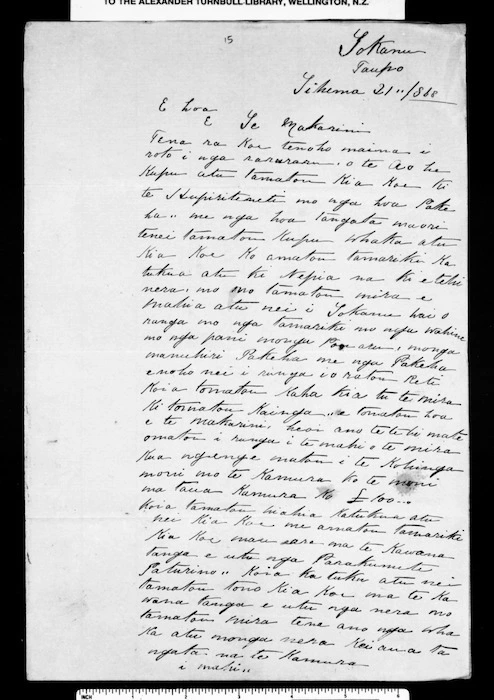 TO THE ALEXANDER TURNBULL LIBRARY, WELLINGTON, N.Z.
15
Tokanu
Taupo
Tihema 21"/868
E hoa
E Te Makarini
Tena ra Koe tenoho maina i
roto i nga raruraru, o te Ao he
Kupu atu tamatou Kia Koe Ki
te Hupiriteneti mo nga hoa Pake
ha,, me nga hoa tangata maori
tenei tamatou Kupu whaka atu
Kia Koe Ko amatou tamariki Ka
tukua atu Ki Nepia na Ki etehi
nera, mo mo tamatou mira e
mahia atu nei i Tokanu hai o
ranga mo nga tamariki mo nga wahine
mo nga pani monga monga
manuhiri Pakeha me nga Pakeha
enoho nei i runga io ratou Reti
Koia tomatou Kaha Kia tu te mira
Ki tomatou Kainga,, e tomatou hoa
e te makarini, heoi ano tetehi mate
omatou i runga i te mahi o te mira
Kua ngenge matou i te Kohinga
moni mo te Kamura Ko te moni
ma taua Kamura Ko £100,,
Koia tamatou hiahia Katukua atu
nei Kia Koe me amatou tamariki
Kia Koe mau ma te Kawana
tanga e utu nga Parakumete
Paturino,, Koia Ka tuku atu nei
tamatou tono Kia Koe ma te Ka
wana tanga e utu nga nera mo
tamatou mira tena ano nga wha
Ka atu monga nera Kei aua ta
ngata na te Kamura
i mahi,,
INCH 1 2 3 4 5 6